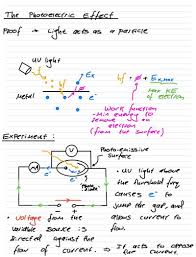 The Photoelectric Effect
Proof → Light acts as a particle
UV light
Ex
hf = Φ + Ek max
max KE of electron
e⁻
metal
Work function
- Min energy to remove an electron (from the surface)
Experiment:
Photo-emissive surface
e⁻
• UV light above the threshold freq. causes e⁻ to jump the gap, and allows current to flow.
• Voltage from the variable source is directed against the flow of current. ⇒ It acts to oppose the current.